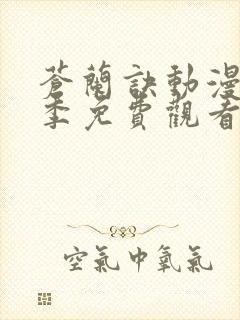 蒼蘭訣動漫
季免費觀看
空氣中氧氣